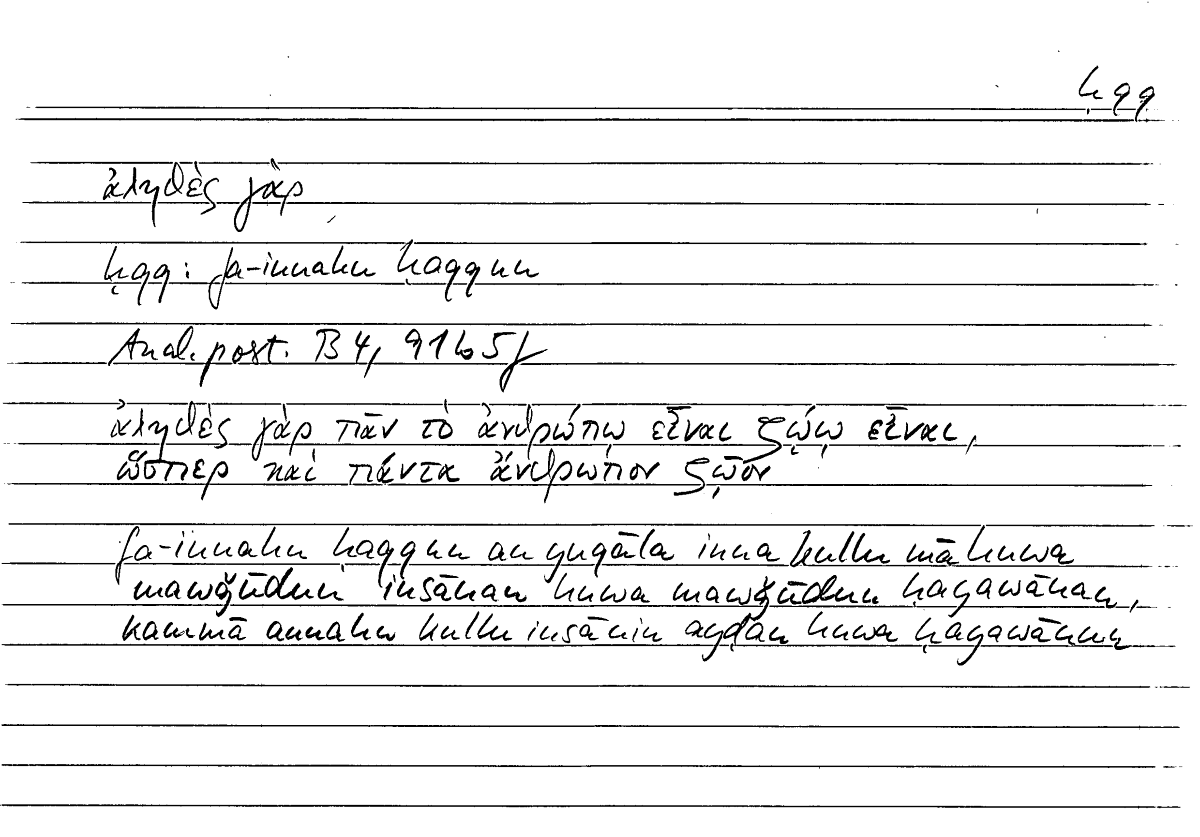 ḥqq
ἀληθὲς γὰρ
ḥqq: fa-innahu ḥaqqun
Anal. post. B 4, 91 b 5 f
ἀληθὲς γὰρ πᾶν τὸ ἀνθρώπῳ εἶναι ζῴῳ εἶναι,
ὥσπερ καὶ πάντα ἄνθρωπον ζῷον
fa-innahu ḥaqqun an yuqāla inna kullu mā huwa
mawǧūdun insānan huwa mawǧūdun ḥayawānan,
kammā annahu kullu insānin ayḍan huwa ḥayawānun